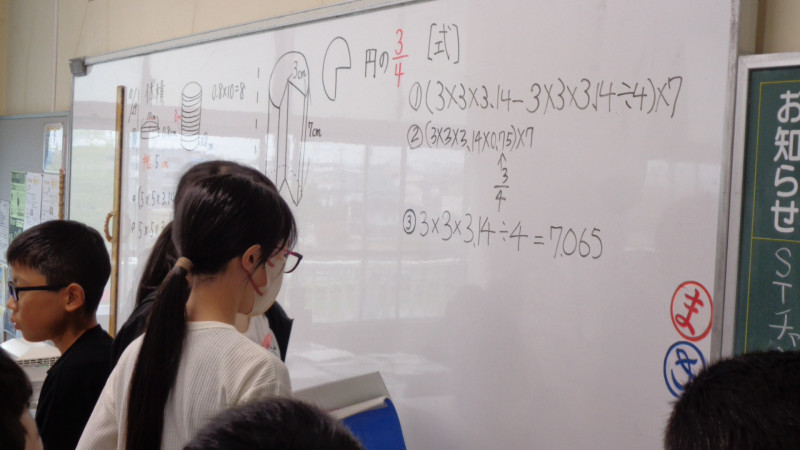 体積
0.8×10=8
3cm
7cm
円の3/4
[式]
①(3×3×3.14-3×3×3.14÷4)×7
②(3×3×3.14×0.75)×7
↑
3/4
③3×3×3.14÷4=7.065
ま
お知らせ
STチャ